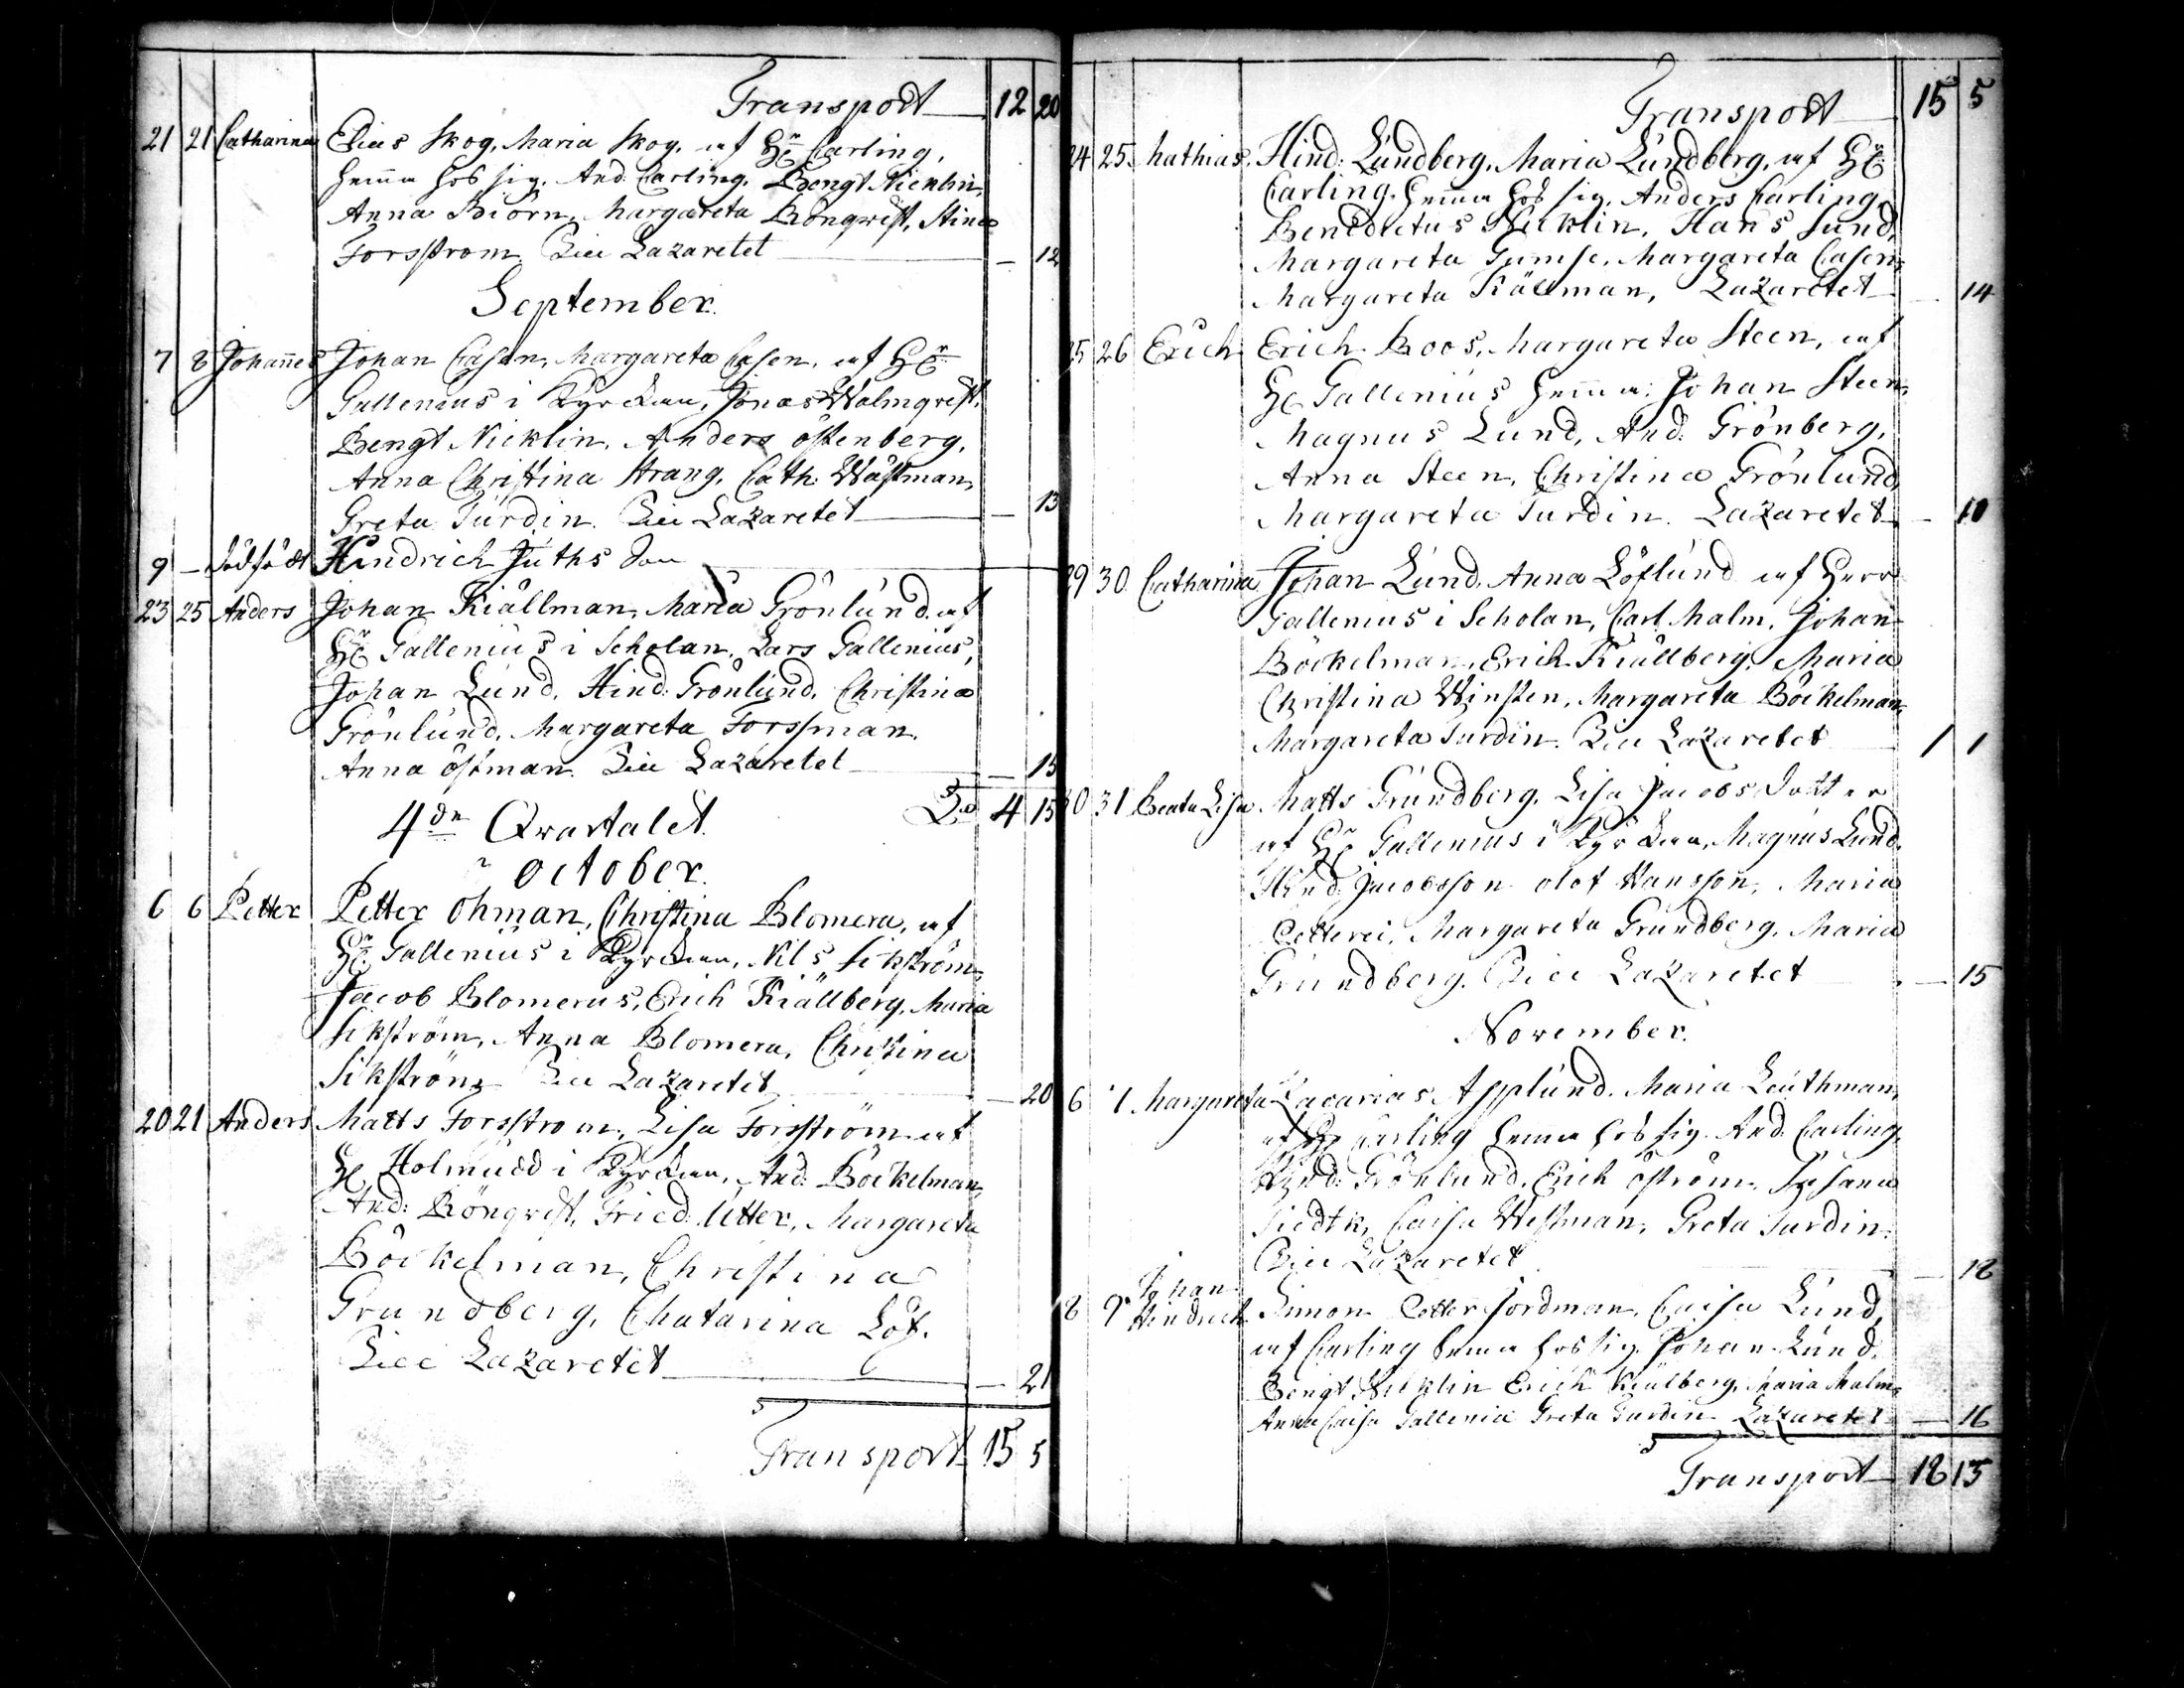 Transport 12 20
21 21 Catharina Elias Skog, Maria Skog, af Hr Carling,
hemma hos sig. And. Carling, Bengt Nicklin,
Anna Biörn, Margareta Rönqwist, Stina
Forsstrom. Lazaretet — 12
September.
7 8 Johannes Johan Casen, Margareta Casen, af Hr
Gallenius i Kyrckan, Jonas Malmqvist,
Bengt Nicklin, Anders östenberg,
Anna Christina Strang, Cath. Wästman,
Greta Turdin. Lazaretet — 13
9 — dödfödt Hindrich Juths Son
23 25 Anders Johan Kiällman, Maria Grönlund. af
Hr Gallenius i Scholan. Lars Gallenius,
Johan Lund, Hind: Grönlund, Christina
Grönlund, Margareta Forssman.
Anna östman. Lazaretet — 15
4 15
4de Qvartalet.
October.
6 6 Petter Petter Öhman, Christina Blomera, af
Hr Gallenius i Kyrckan, Nils Sikström,
Jacob Blomerus, Erich Kiällberg, Maria
Sikström, Anna Blomera, Christina
Sikström Lazaretet — 20
20 21 Anders Matts Forsstrom, Lisa Forsström af
Hr Holmudd i Kyrckan, And: Böckelman,
And: Rönqvist, Fried: Utter, Margareta
Böckelman, Christina
Grundberg, Chatarina Löf.
Lazaretet — 21
Transport 15 5
Transport 15 5
24 25. Mathias. Hind: Lundberg, Maria Lundberg, af Hr
Carling. hemma hos sig. Anders Carling,
Benedictus Nicklin, Hans Sund,
Margareta Gumse, Margareta Casen,
Margareta Kiällman, Lazaretet — 14
25 26 Erich Erich Roos, Margareta Steen, af
Hr Gallenius hemma: Johan Steen,
Magnus Lund, And: Grönberg,
Anna Steen, Christina Grönlund,
Margareta Turdin. Lazaretet — 10
29 30 Catharina Johan Lund, Anna Löflund af Herr
Gallenius i Scholan, Carl Malm, Johan
Böckelman, Erich Kiällberg, Maria
Christina Winsten, Margareta Böckelman,
Margareta Turdin. Lazaretet 1 1
30 31 Beata Lisa Matts Grundberg, Lisa Jacobs Dotter
af Hr Gallenius i Kyrckan, Magnus Lund,
Hind: Jacobsson olof Hansson, Maria
Margareta Grundberg, Maria
Grundberg. Lazaretet — 15
November.
6 7 Margareta Zacarias Applund. Maria Leuthman,
af Hr Carling hemma hos sig. And. Carling,
Hind: Grönlund, Erich öström, Susana
Caisa Westman, Greta Turdin.
Lazaretet — 18
8 9 Johan Hindrich Simon Petter Nordman, Caisa Lund,
af Carling hemma hos sig. Johan Lund,
Bengt Nicklin Erich Kiälberg, Maria Malm,
Anna Caisa Gallenia Greta Turdin Lazaretet — 16
Transport 18 15